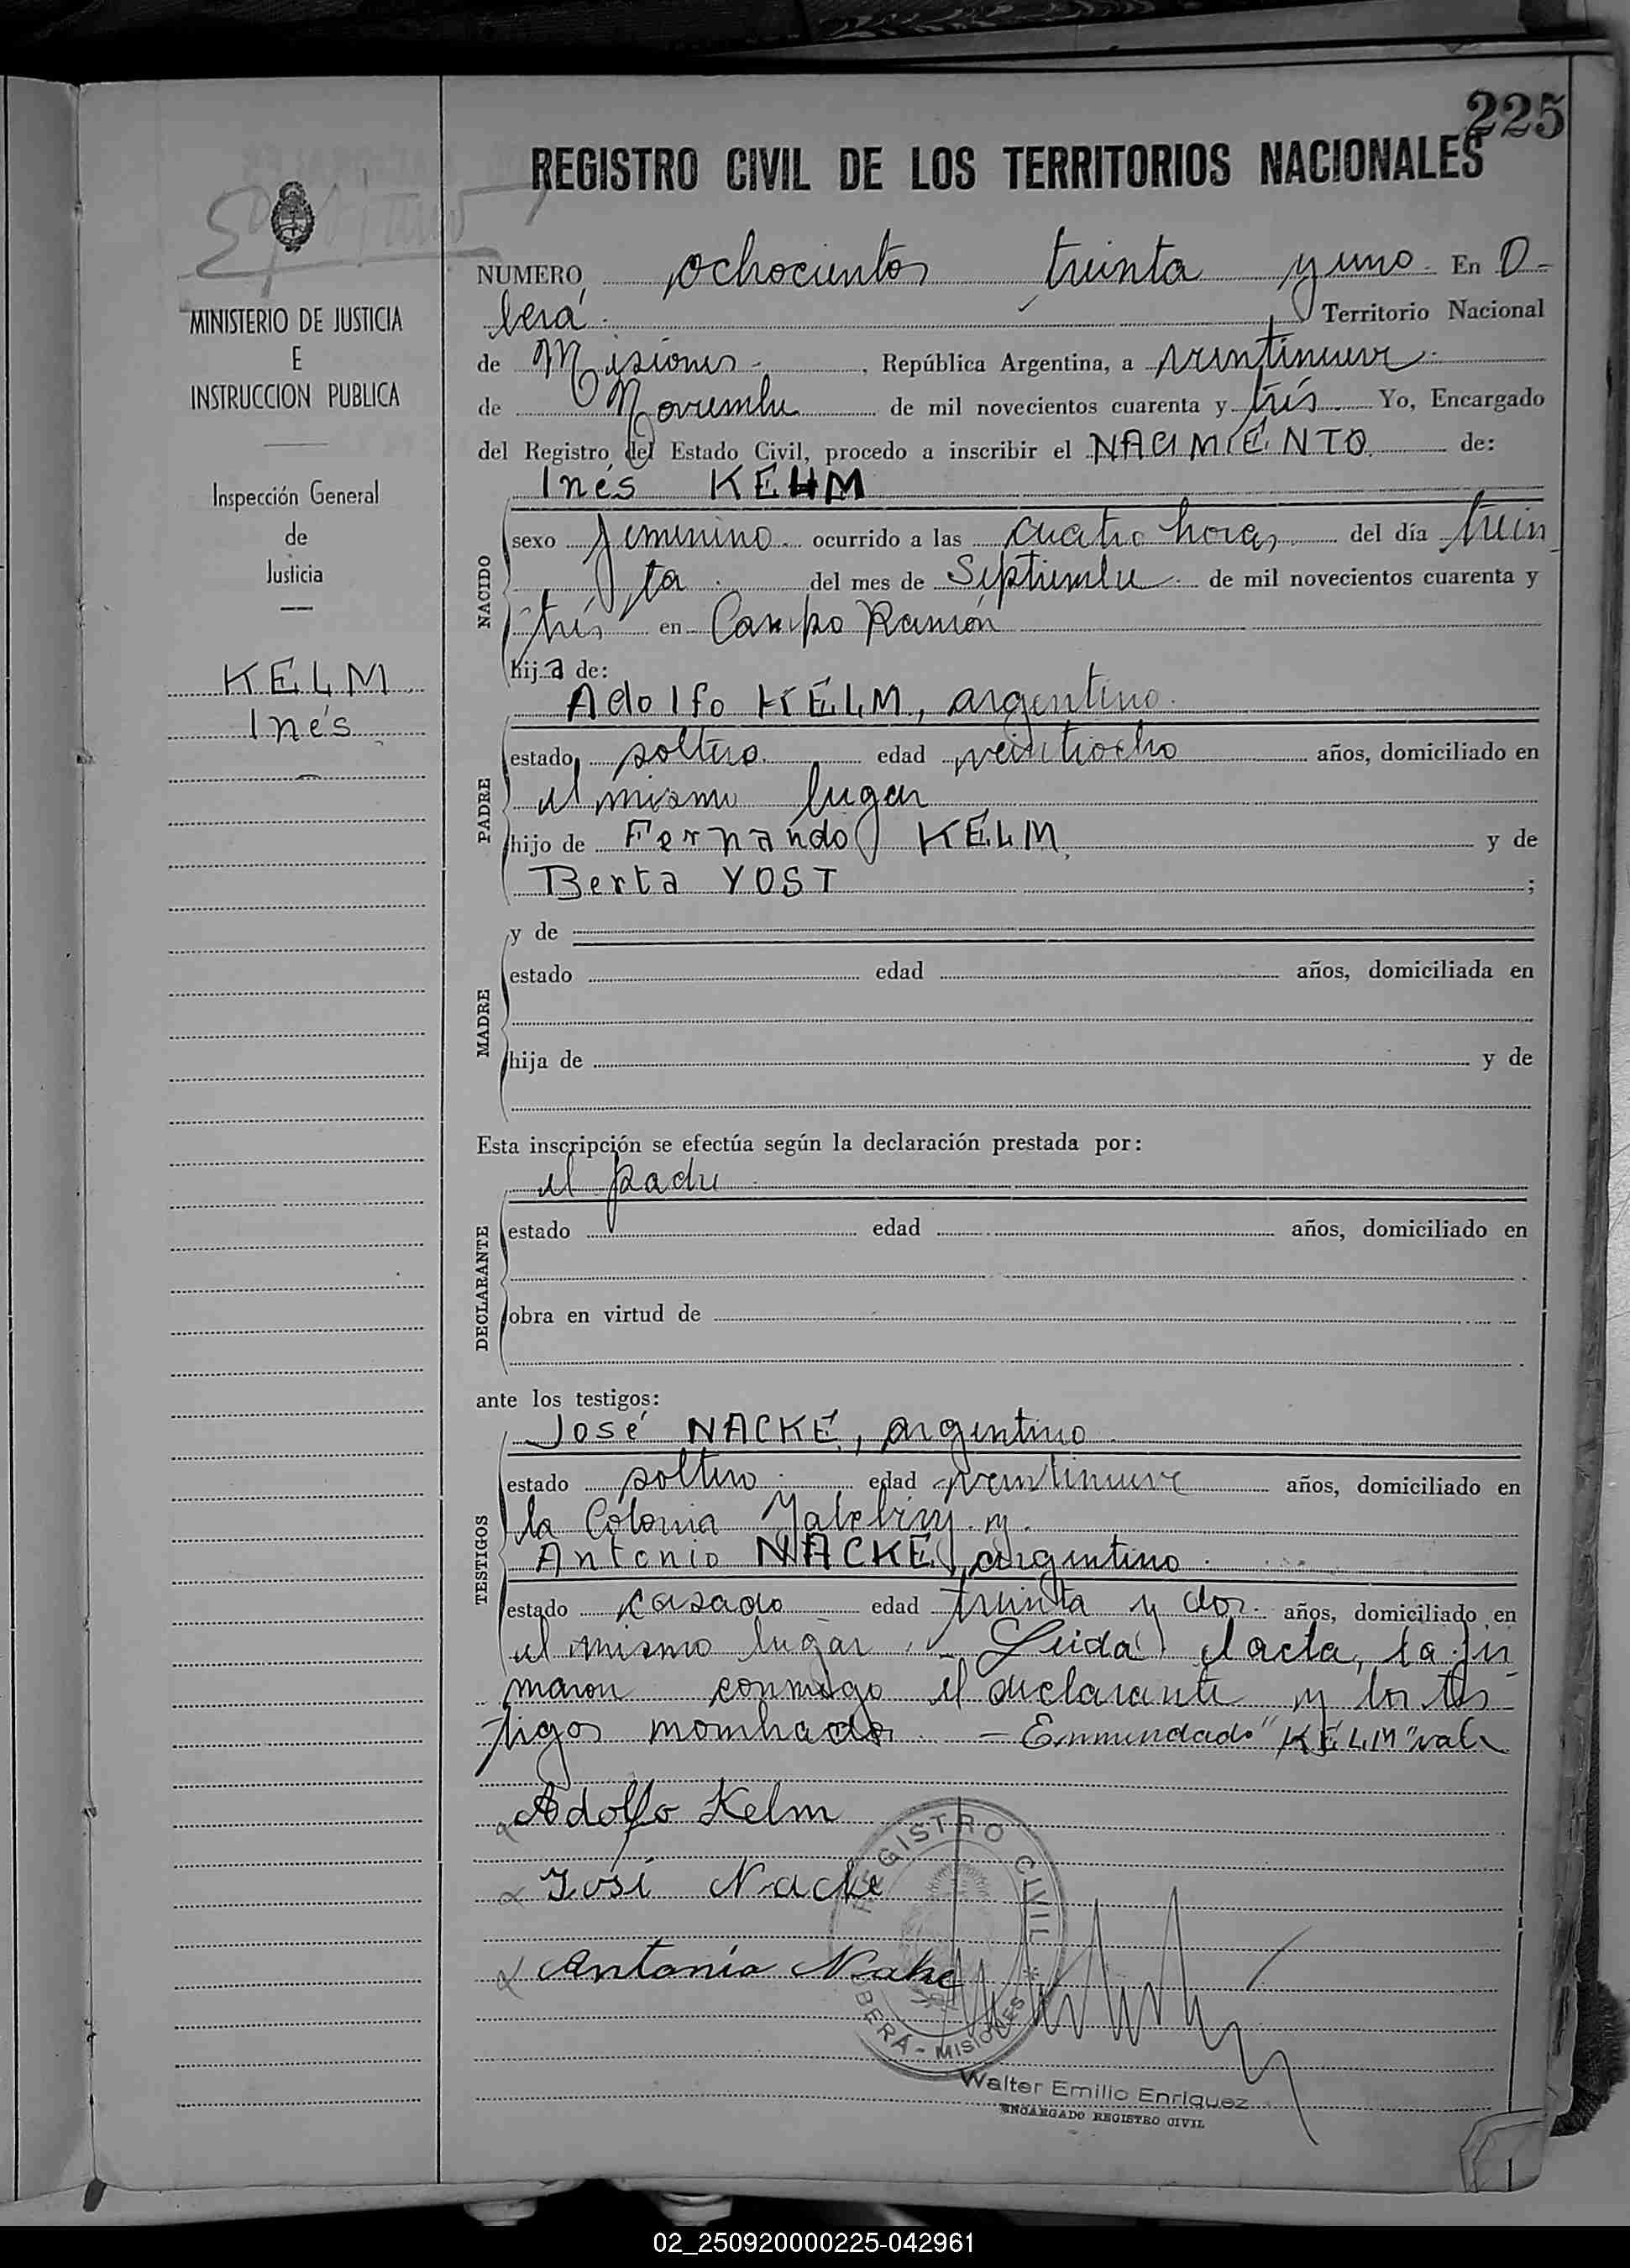 225
REGISTRO CIVIL DE LOS TERRITORIOS NACIONALES
MINISTERIO DE JUSTICIA
E
INSTRUCCION PUBLICA
Inspección General
de
Justicia
KELM
Inés
NUMERO ochocientos treinta y uno. En O-
berá. Territorio Nacional
de Misiones, República Argentina, a veintinueve
de Noviembre de mil novecientos cuarenta y trés. Yo, Encargado
del Registro del Estado Civil, procedo a inscribir el NACIMIENTO de:
Inés KELM
NACIDO
sexo femenino ocurrido a las cuatro horas, del día trein
ta del mes de Septiembre de mil novecientos cuarenta y
trés en Campo Ramón
hija de:
Adolfo KELM, argentino.
PADRE
estado soltero edad veintiocho años, domiciliado en
el mismo lugar
hijo de Fernando KELM y de
Berta YOST ;
MADRE
y de
estado edad años, domiciliada en
hija de y de
Esta inscripción se efectúa según la declaración prestada por:
el padre
DECLARANTE
estado edad años, domiciliado en
obra en virtud de
ante los testigos:
TESTIGOS
José NACKE, argentino
estado soltero edad veintinueve años, domiciliado en
la Colonia y
Antonio NACKE, argentino.
estado casado edad treinta y dos años, domiciliado en
el mismo lugar. Leida el acta, la fir
maron conmigo el declarante y los tes
tigos nombrados. - Enmendado "KELM" vale
Adolfo Kelm
José Nacke
Antonio Nake
REGISTRO CIVIL
OBERÁ - MISIONES
Walter Emilio Enriquez
ENCARGADO REGISTRO CIVIL
02_250920000225-042961